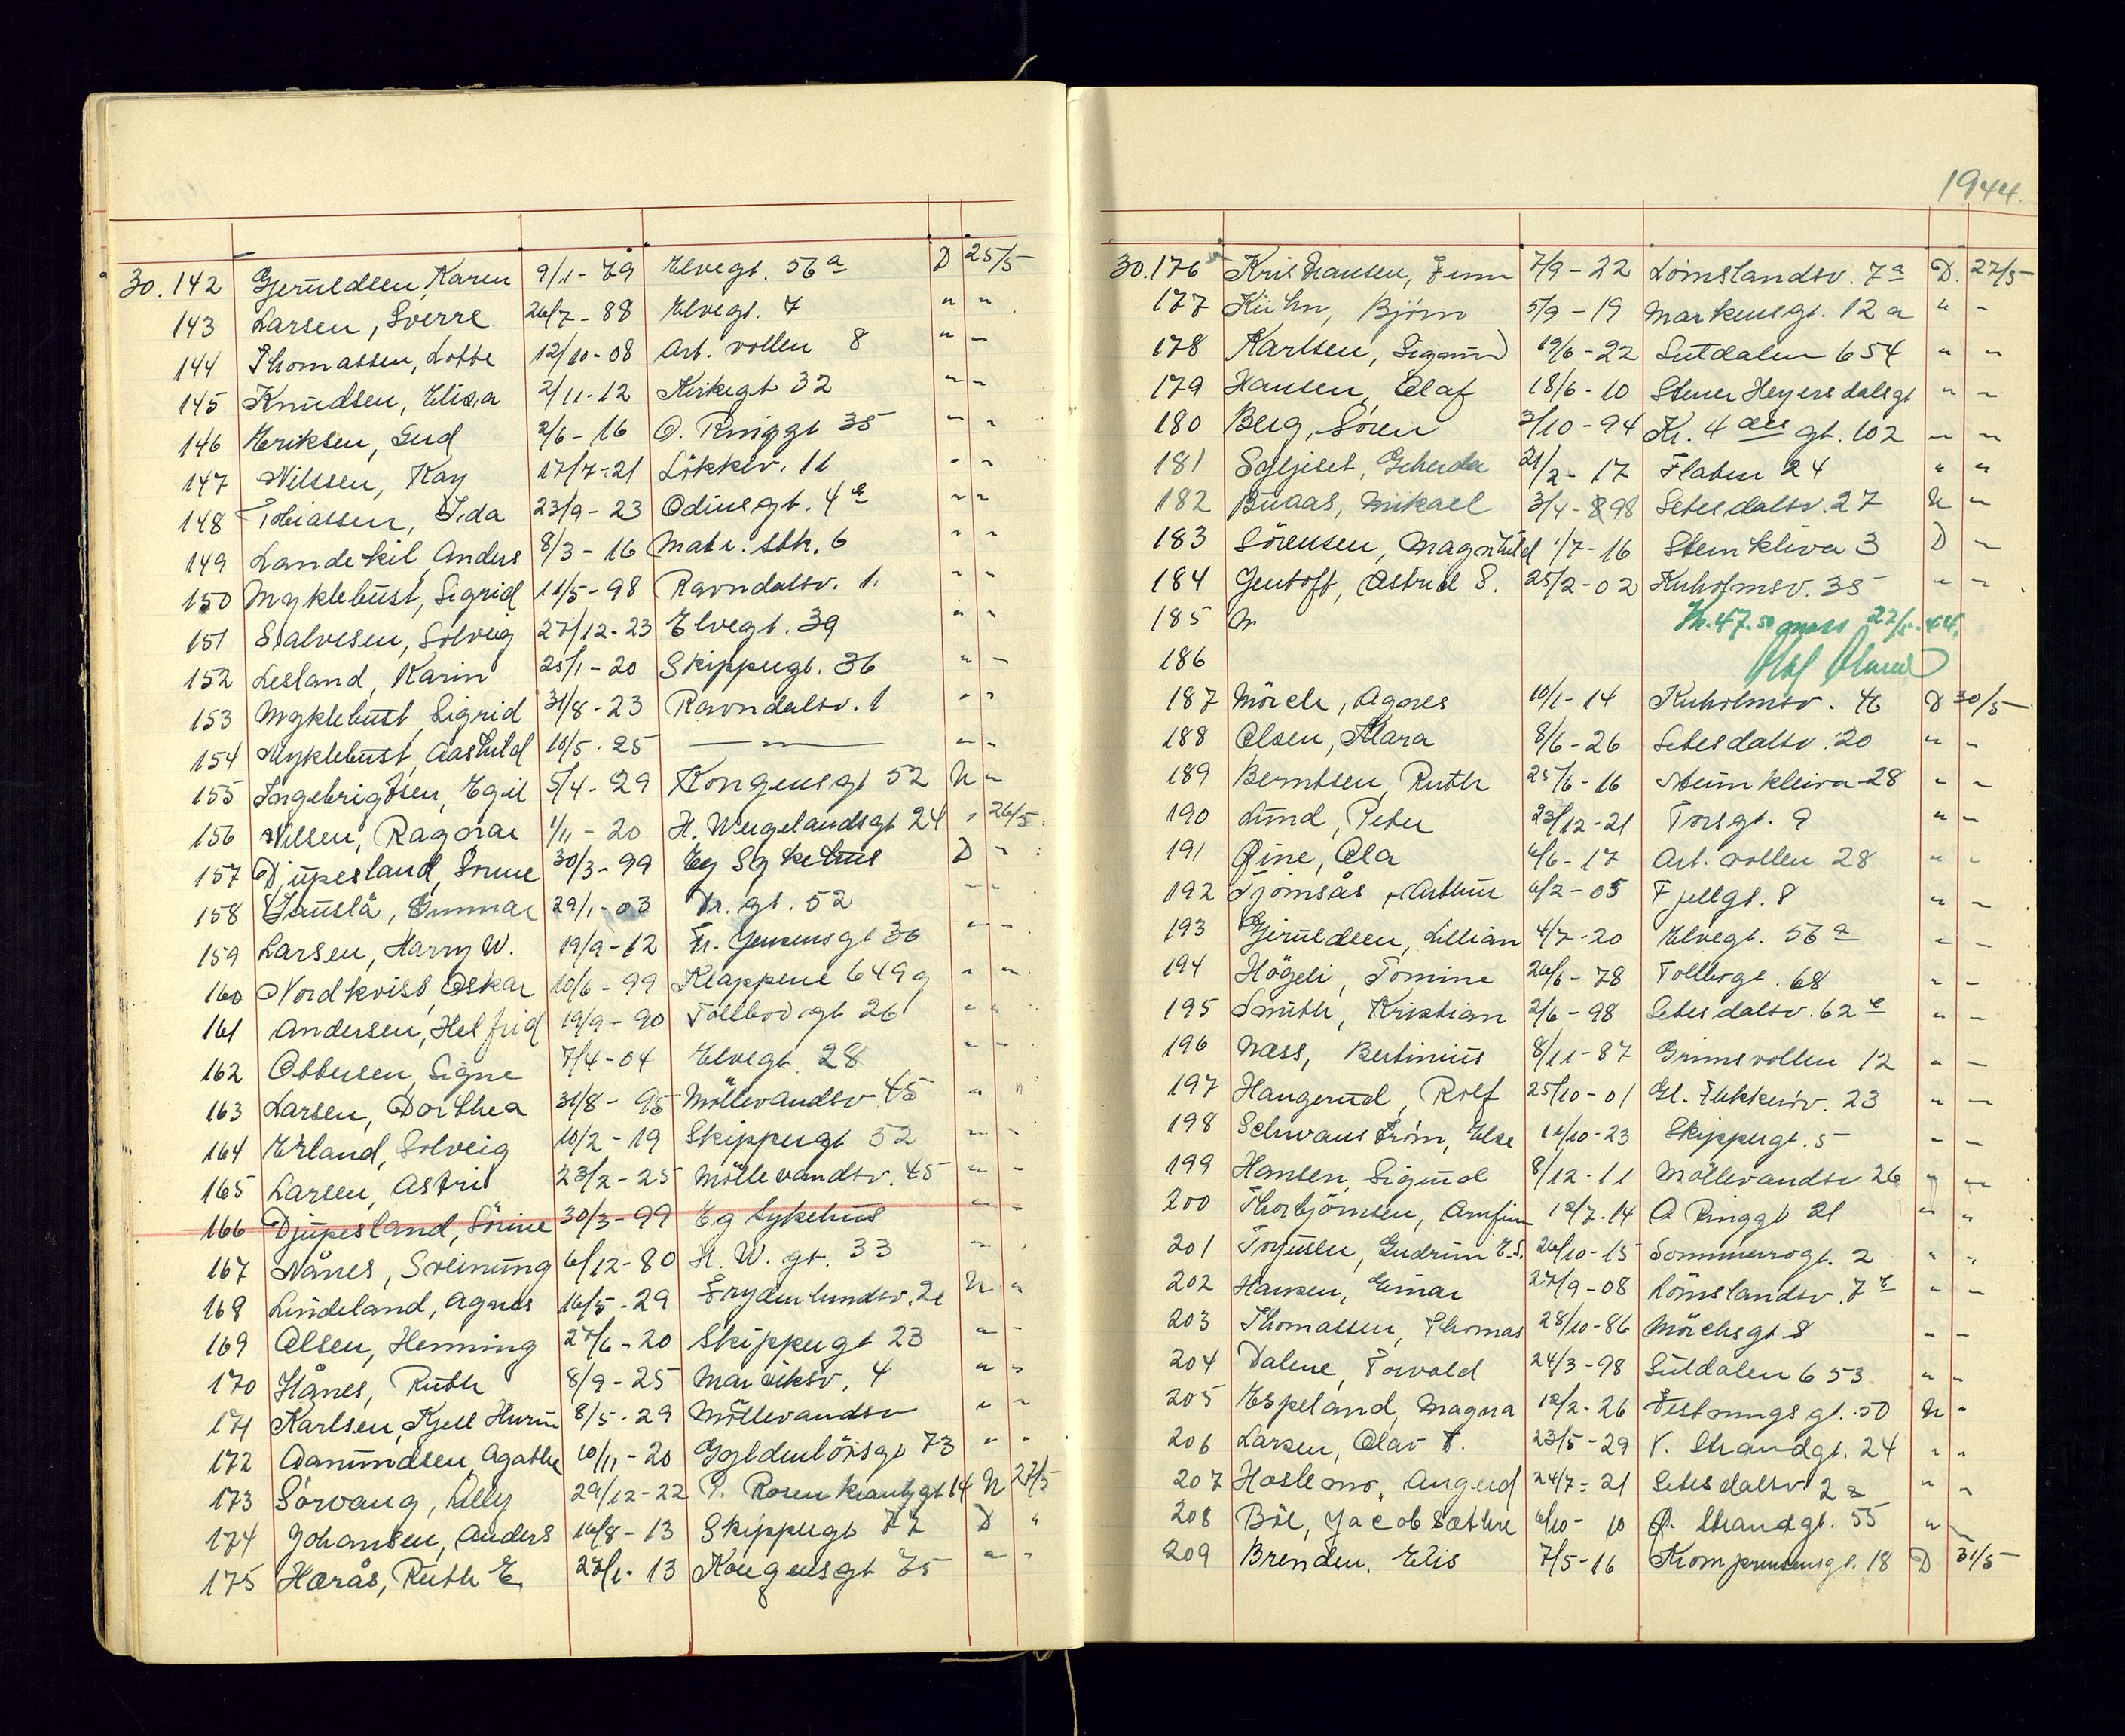 30.142 Gjeruldsen, Karen 9/1-79 Elvegt. 56a D 25/5
143 Larsen, Sverre 26/7-88 Elvegt. 7 " "
144 Thomassen, Lotte 12/10-08 Arb. vollen 8 " "
145 Knudsen, Elisa 2/11-12 Kirkegt 32 " "
146 Eriksen, Gerd 2/6-16 O. Ringgt 35 " "
147 Nilssen, Kay 17/7-21 Løkkev. 11 " "
148 Tobiassen, Ida 23/9-23 Odinsgt. 4e " "
149 Landekil, Anders 8/3-16 Matr. sth. 6 " "
150 Myklebust, Sigrid 11/5-98 Ravndalsv. 1. " "
151 Salvesen, Solveig 27/12-23 Elvegt. 39 " "
152 Lesland, Karin 25/1-20 Skippergt. 36 " "
153 Myklebust, Sigrid 31/8-23 Ravndalsv. 1 " "
154 Myklebust, Aashild 10/5-25 — " — " "
155 Ingebrigtsen, Egil 5/4-29 Kongensgt 52 N "
156 Nilsen, Ragnar 1/11-20 H. Wergelandsgt 24 " 26/5
157 Djupesland, Sørine 30/3-99 Eg Sykehus D "
158 Gunnar 29/1-03 Dr. gt. 52 " "
159 Larsen, Harry W. 19/9-12 Fr. Jensensgt 36 " "
160 Nordkvist, Oskar 10/6-99 Klappene 649g " "
161 Andersen, Helfrid 19/9-90 Tollbodgt 26 " "
162 Ottersen, Signe 7/4-04 Elvegt. 28 " "
163 Larsen, Dorthea 31/8-95 Möllevandsv 45 " "
164 Erland, Solveig 10/2-19 Skippergt 52 " "
165 Larsen, Astrid 23/2-25 Möllevandsv. 45 " "
166 Djupesland, Sörine 30/3-99 Eg Sykehus " "
167 Nånes, Sveinung 6/12-80 H. W. gt. 33 " "
168 Lindeland, Agnes 16/5-29 Frydenlundsv. 2e N "
169 Olsen, Henning 27/6-20 Skippergt 23 " "
170 Hånes, Ruth 8/9-25 Marviksv. 4 " "
171 Karlsen, Kjell 8/5-29 Möllevandsv " "
172 Aamundsen, Agathe 10/11-20 Gyldenlövsgt 73 " "
173 Sørvang, Lilly 29/12-22 P. Rosenkrantzgt 14 N 27/5
174 Johansen, Anders 16/8-13 Skippergt 77 D "
175 Harås, Ruth E. 27/1-13 Kongensgt 75 " "
1944.
30.176 Kristiansen, Finn 7/9-22 Lømslandsv. 7a D. 27/5
177 Kühn, Bjørn 5/9-19 Markensgt. 12a " "
178 Karlsen, Sigmund 19/6-22 Suldalen 654 " "
179 Hansen, Olaf 18/6-10 Stener Heyersdalsgt " "
180 Berg, Sören 3/10-94 Kr. 4des gt. 102 " "
181 21/2-17 Flaten 24 " "
182 Buaas, Mikael 3/4-898 Setesdalsv. 27 N "
183 Sörensen, Magnhild 1/7-16 Stenkleiva 3 D "
184 Gentoft, Astrid S. 25/2-02 Kuholmsv. 35 " "
185
Kr. 47.50 22/5-44.
186
187 Mörch, Agnes 10/1-14 Kuholmsv. 46 D 30/5
188 Olsen, Klara 8/6-26 Setesdalsv. 20 " "
189 Berntsen, Ruth 25/6-16 Steinkleiva 28 " "
190 Lund, Peter 23/12-21 Torsgt. 9 " "
191 Ola 6/6-17 Arb. vollen 28 " "
192 Tjomsås, Arthur 6/2-05 Fjellgt. 8 " "
193 Gjeruldsen, Lillian 4/7-20 Elvegt. 56a " "
194 Högeli, Tomine 26/6-78 Tollbogt. 68 " "
195 Smith, Kristian 2/6-98 Setesdalsv. 62e " "
196 Næss, Bertinius 8/11-87 Grimsvollen 12 " "
197 Haugerud, Rolf 25/10-01 Gl. Flekkeröv. 23 " "
198 Schwanström, Else 11/10-23 Skippergt. 5 " "
199 Hansen, Sigurd 8/12-11 Möllevandsv 26 " "
200 Thorbjörnsen, Arnfinn 12/7-14 O Ringgt 21 " "
201 Gudrun E.S. 26/10-15 Sommerrogt. 2 " "
202 Hansen, Einar 27/9-08 Lömslandsv. 7e " "
203 Thomassen, Thomas 28/10-86 Mörchsgt 8 " "
204 Dalene, Torvald 24/3-98 Suldalen 653 " "
205 Espeland, Magna 12/2-26 Festningsgt. 50 N "
206 Larsen, Olav T. 23/5-29 V. Strandgt. 24 " "
207 Haslemo, Angerd 24/7-21 Setesdalsv. 2a " "
208 Böe, Jacob Sæthre 6/10-10 Ø. Strandgt. 55 " "
209 Brenden, Elis 7/5-16 Kronprinsensgt. 18 D 31/5